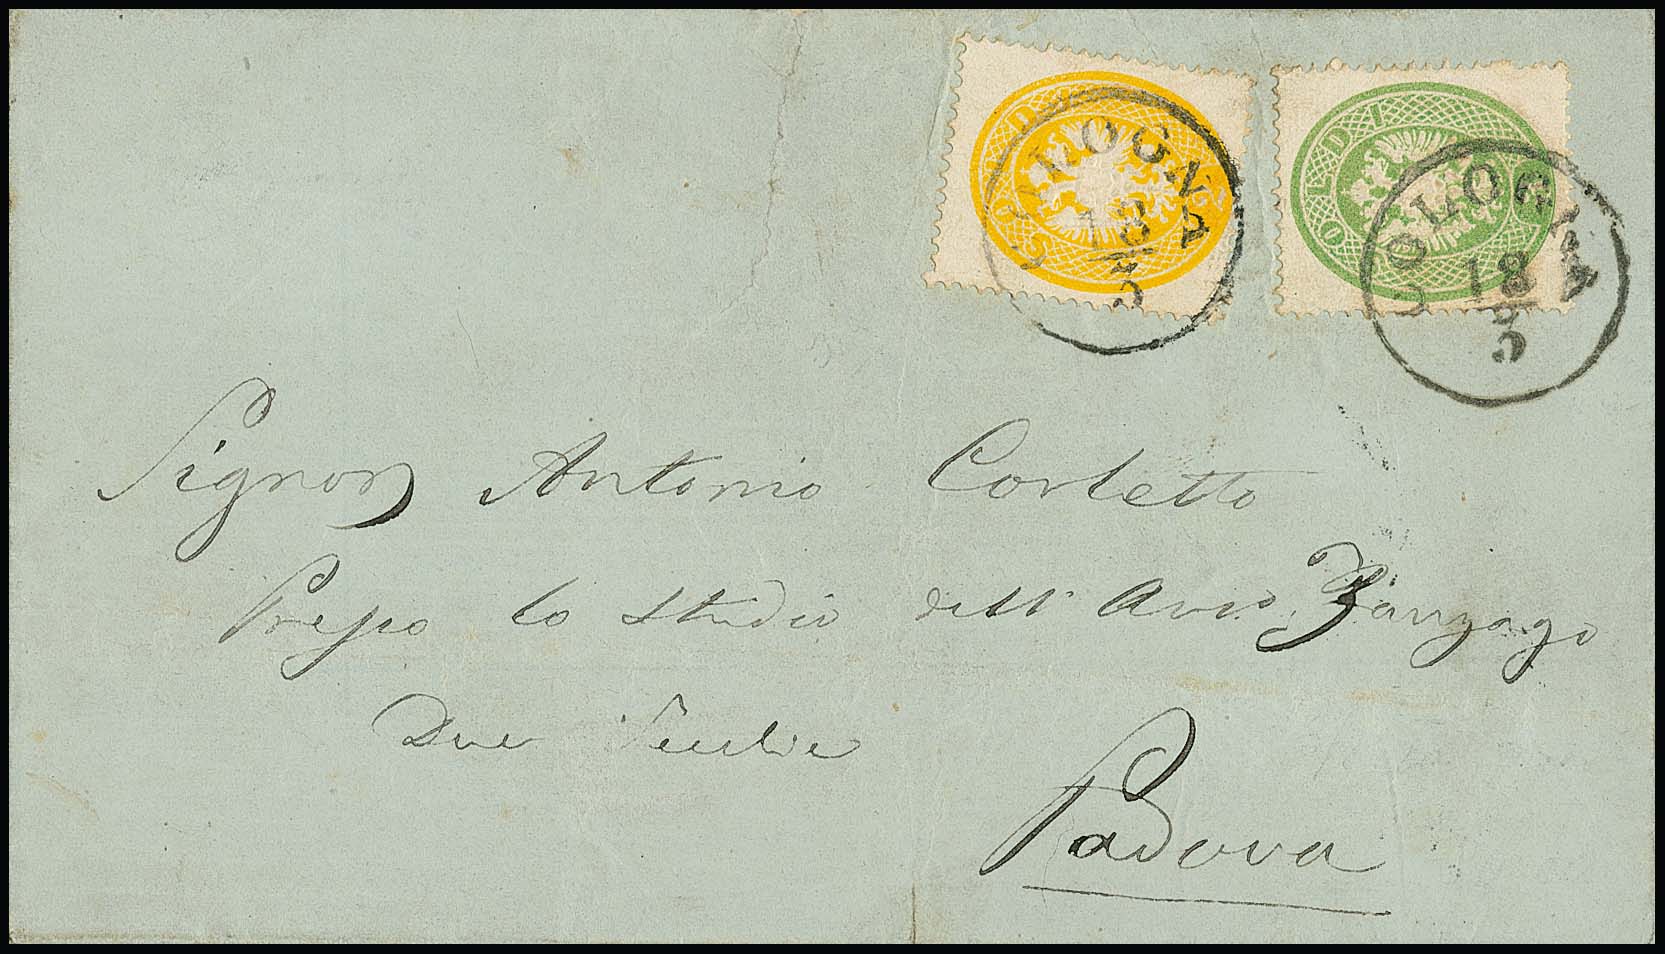 SOLDI
SOLDI
COLOGNA
18
5
COLOGNA
18
5
Signor Antonio Corletto
Presso lo Studio dell' Avvo. Zanzago
Due Vecchie
Padova